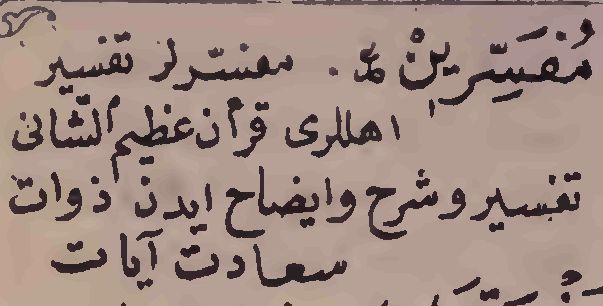 مُفَسِّرِينْ ع . مفسّرلر تفسير
اهللری قرآن عظيم الشّانی
تفسير و شرح وايضاح ايدن ذوات
سعادت آيات